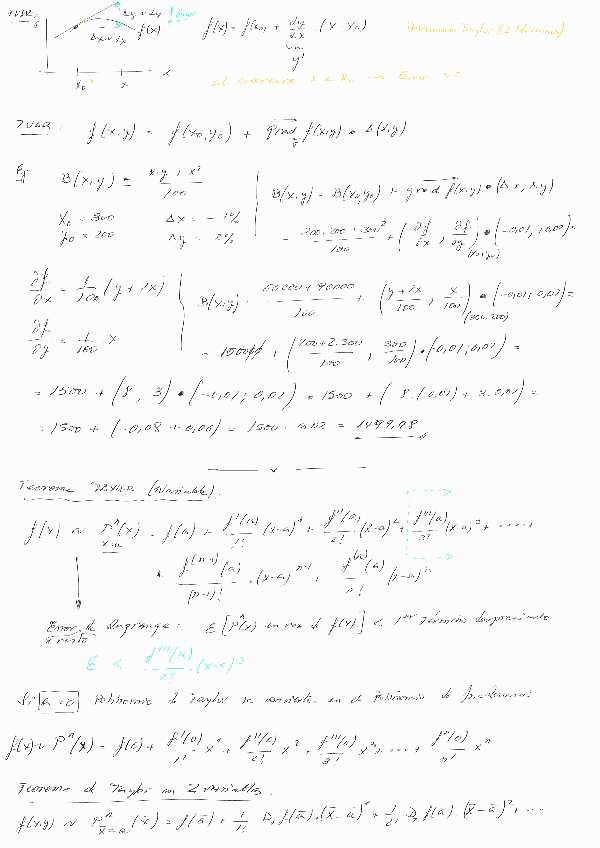 1 VAR:
Δy ~ dy
Error
Δx ~ dx
f(x)
x₀ x x
f(x) = f(x₀) + dy/dx · (x - x₀)
y'
Polinomio Taylor (2 términos)
x₀ → Error = 0
2 VAR: f(x,y) = f(x₀,y₀) + grad f(x,y) • Δ(x,y)
Ej B(x,y) = x·y + x² / 100
x₀ = 300 Δx = -1%
y₀ = 200 Δy = 2%
B(x,y) = B(x₀,y₀) + grad f(x,y) • (Δx, Δy)
= 300·200 + 300² / 100 + (∂f/∂x , ∂f/∂y) • (-0,01 ; 0,02) =
∂f/∂x = 1/100 (y + 2x)
∂f/∂y = 1/100 · x
B(x,y) = 60000 + 90000 / 100 + (y+2x / 100 , x / 100)(300,200) • (-0,01 ; 0,02) =
= 1500 + (200+2·300 / 100 , 300 / 100) • (-0,01 ; 0,02) =
= 1500 + (8, 3) • (-0,01 ; 0,02) = 1500 + (8·(-0,01) + 3·0,02) =
= 1500 + (-0,08 + 0,06) = 1500 - 0,02 = 1499,98
Teorema TAYLOR (1 variable).
f(x) ~ Pⁿ(x) x=a = f(a) + f'(a)/1! (x-a)¹ + f''(a)/2! (x-a)² + f'''(a)/3! (x-a)³ + ·····
+ f⁽ⁿ⁻¹⁾(a)/(n-1)! · (x-a)ⁿ⁻¹ + f⁽ⁿ⁾(a)/n! (x-a)ⁿ
Error de Lagrange: ε [Pⁿ(x) en vez de f(x)] < 1er Término despreciado
o resto
ε < f'''(a)/3! · (x-a)³
Si a = 0 Polinomio de Taylor se convierte en el Polinomio de
f(x) ~ Pⁿ(x) = f(0) + f'(0)/1! x¹ + f''(0)/2! x² + f'''(0)/3! x³ + ···· + fⁿ(0)/n! xⁿ
Teorema de Taylor en 2 variables.
f(x,y) ~ Pⁿ x̄=ā (x̄) = f(ā) + 1/1! D₁ f(ā)·(x̄-ā)¹ + 1/2! D₂ f(ā)·(x̄-ā)² + ···